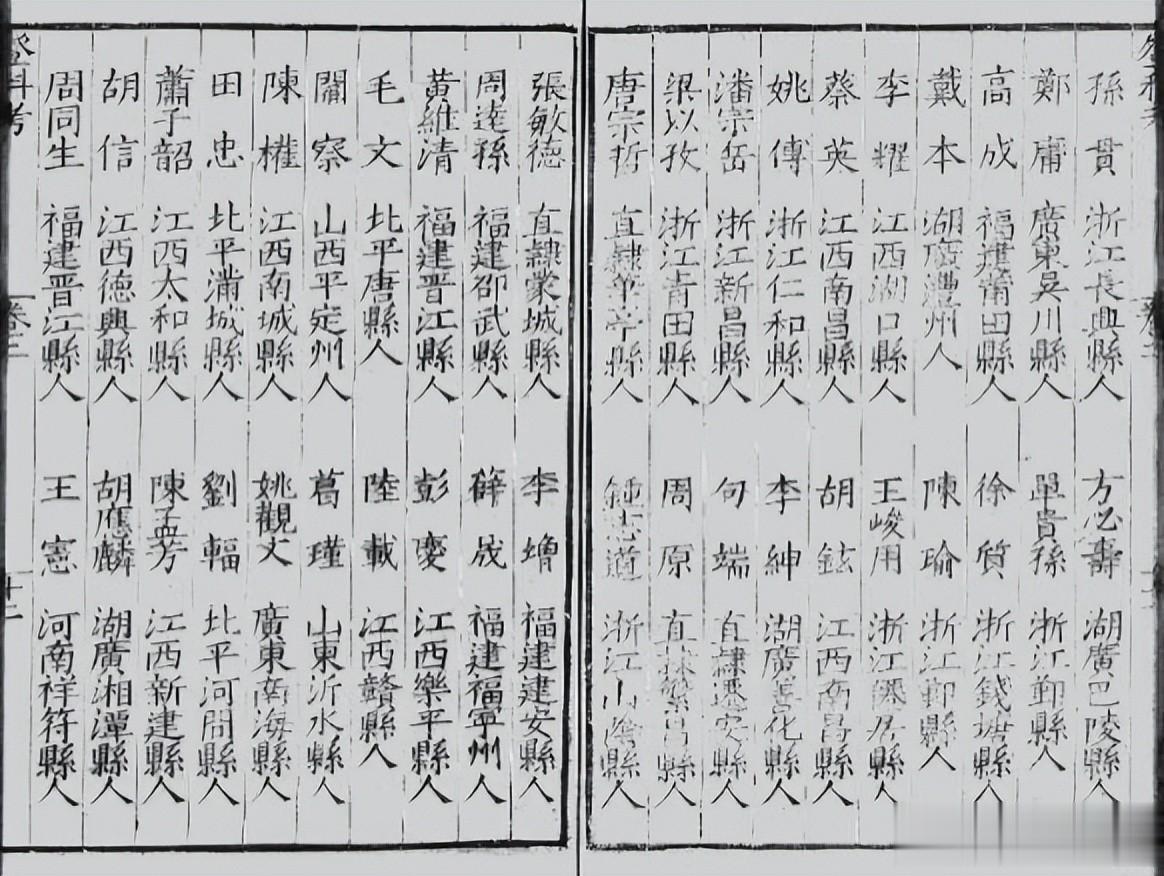 孫貫 浙江長興縣人 方必壽 湖廣巴陵縣人
鄭庸 廣東吳川縣人 單貴孫 浙江鄞縣人
高成 福建莆田縣人 徐質 浙江錢塘縣人
戴本 湖廣澧州人 陳瑜 浙江鄞縣人
李耀 江西湖口縣人 王峻用 浙江居縣人
蔡英 江西南昌縣人 胡鉉 江西南昌縣人
姚傳 浙江仁和縣人 李紳 湖廣善化縣人
潘宗岳 浙江新昌縣人 句端 直隸縣人
梁以孜 浙江青田縣人 周原 直隸繁昌縣人
唐宗哲 直隸華亭縣人 鍾志道 浙江山陰縣人
張敏德 直隸蒙城縣人 李增 福建建安縣人
周達孫 福建邵武縣人 薛晟 福建福寧州人
黃維清 福建晉江縣人 彭慶 江西樂平縣人
毛文 北平唐縣人 陸載 江西贛縣人
關察 山西平定州人 葛瑾 山東沂水縣人
陳權 江西南城縣人 姚觀文 廣東南海縣人
田忠 北平蒲城縣人 劉輻 北平河間縣人
蕭子韶 江西太和縣人 陳孟芳 江西新建縣人
胡信 江西德興縣人 胡應麟 湖廣湘潭縣人
周同生 福建晉江縣人 王憲 河南祥符縣人
登科考 卷三 十二